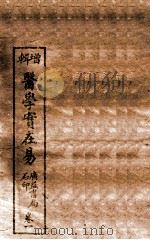 增輯
醫學實在易
廣益書局
石印
卷